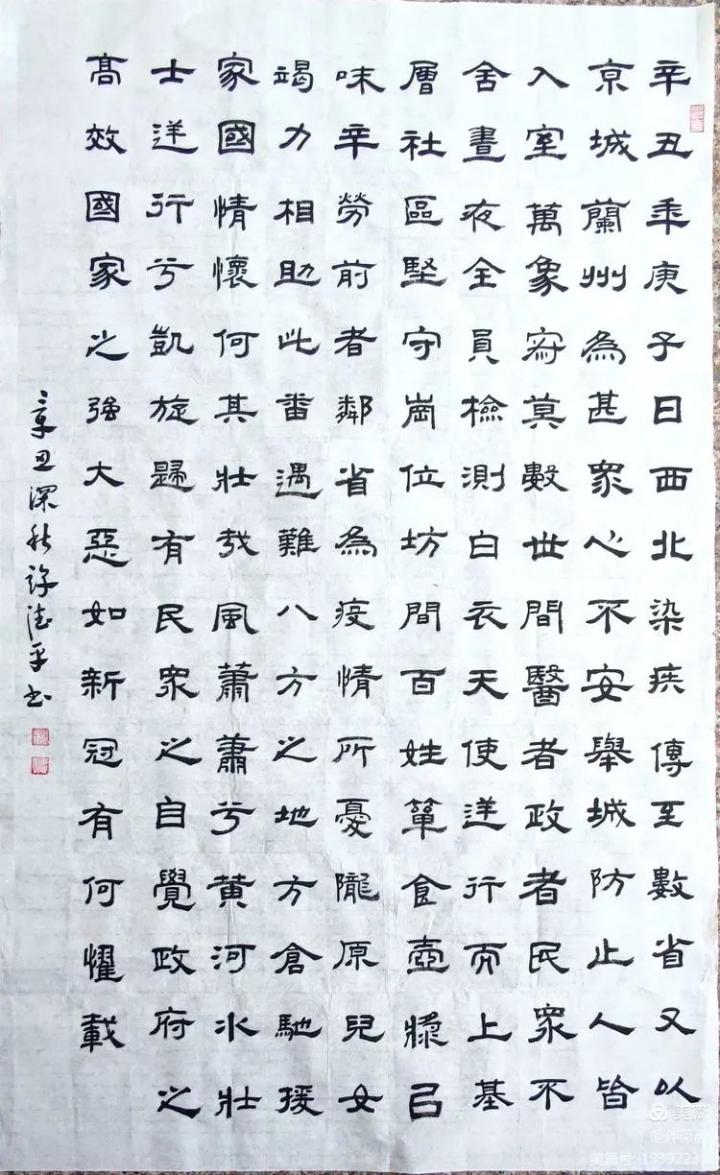 辛丑年庚子日西北染疾傳至數省又以
京城蘭州為甚眾心不安舉城防止人皆
入室萬象寂莫數世間醫者政者民眾不
舍晝夜全員檢測白衣天使逆行而上基
層社區堅守崗位坊間百姓簞食壺漿己
味辛勞前者鄰省為疫情所憂隴原兒女
竭力相助此番遇難八方之地方倉馳援
家國情懷何其壯哉風蕭蕭兮黃河水壯
士逆行兮凱旋歸有民眾之自覺政府之
高效國家之強大惡如新冠有何懼載
辛丑深秋許德平書
美篇